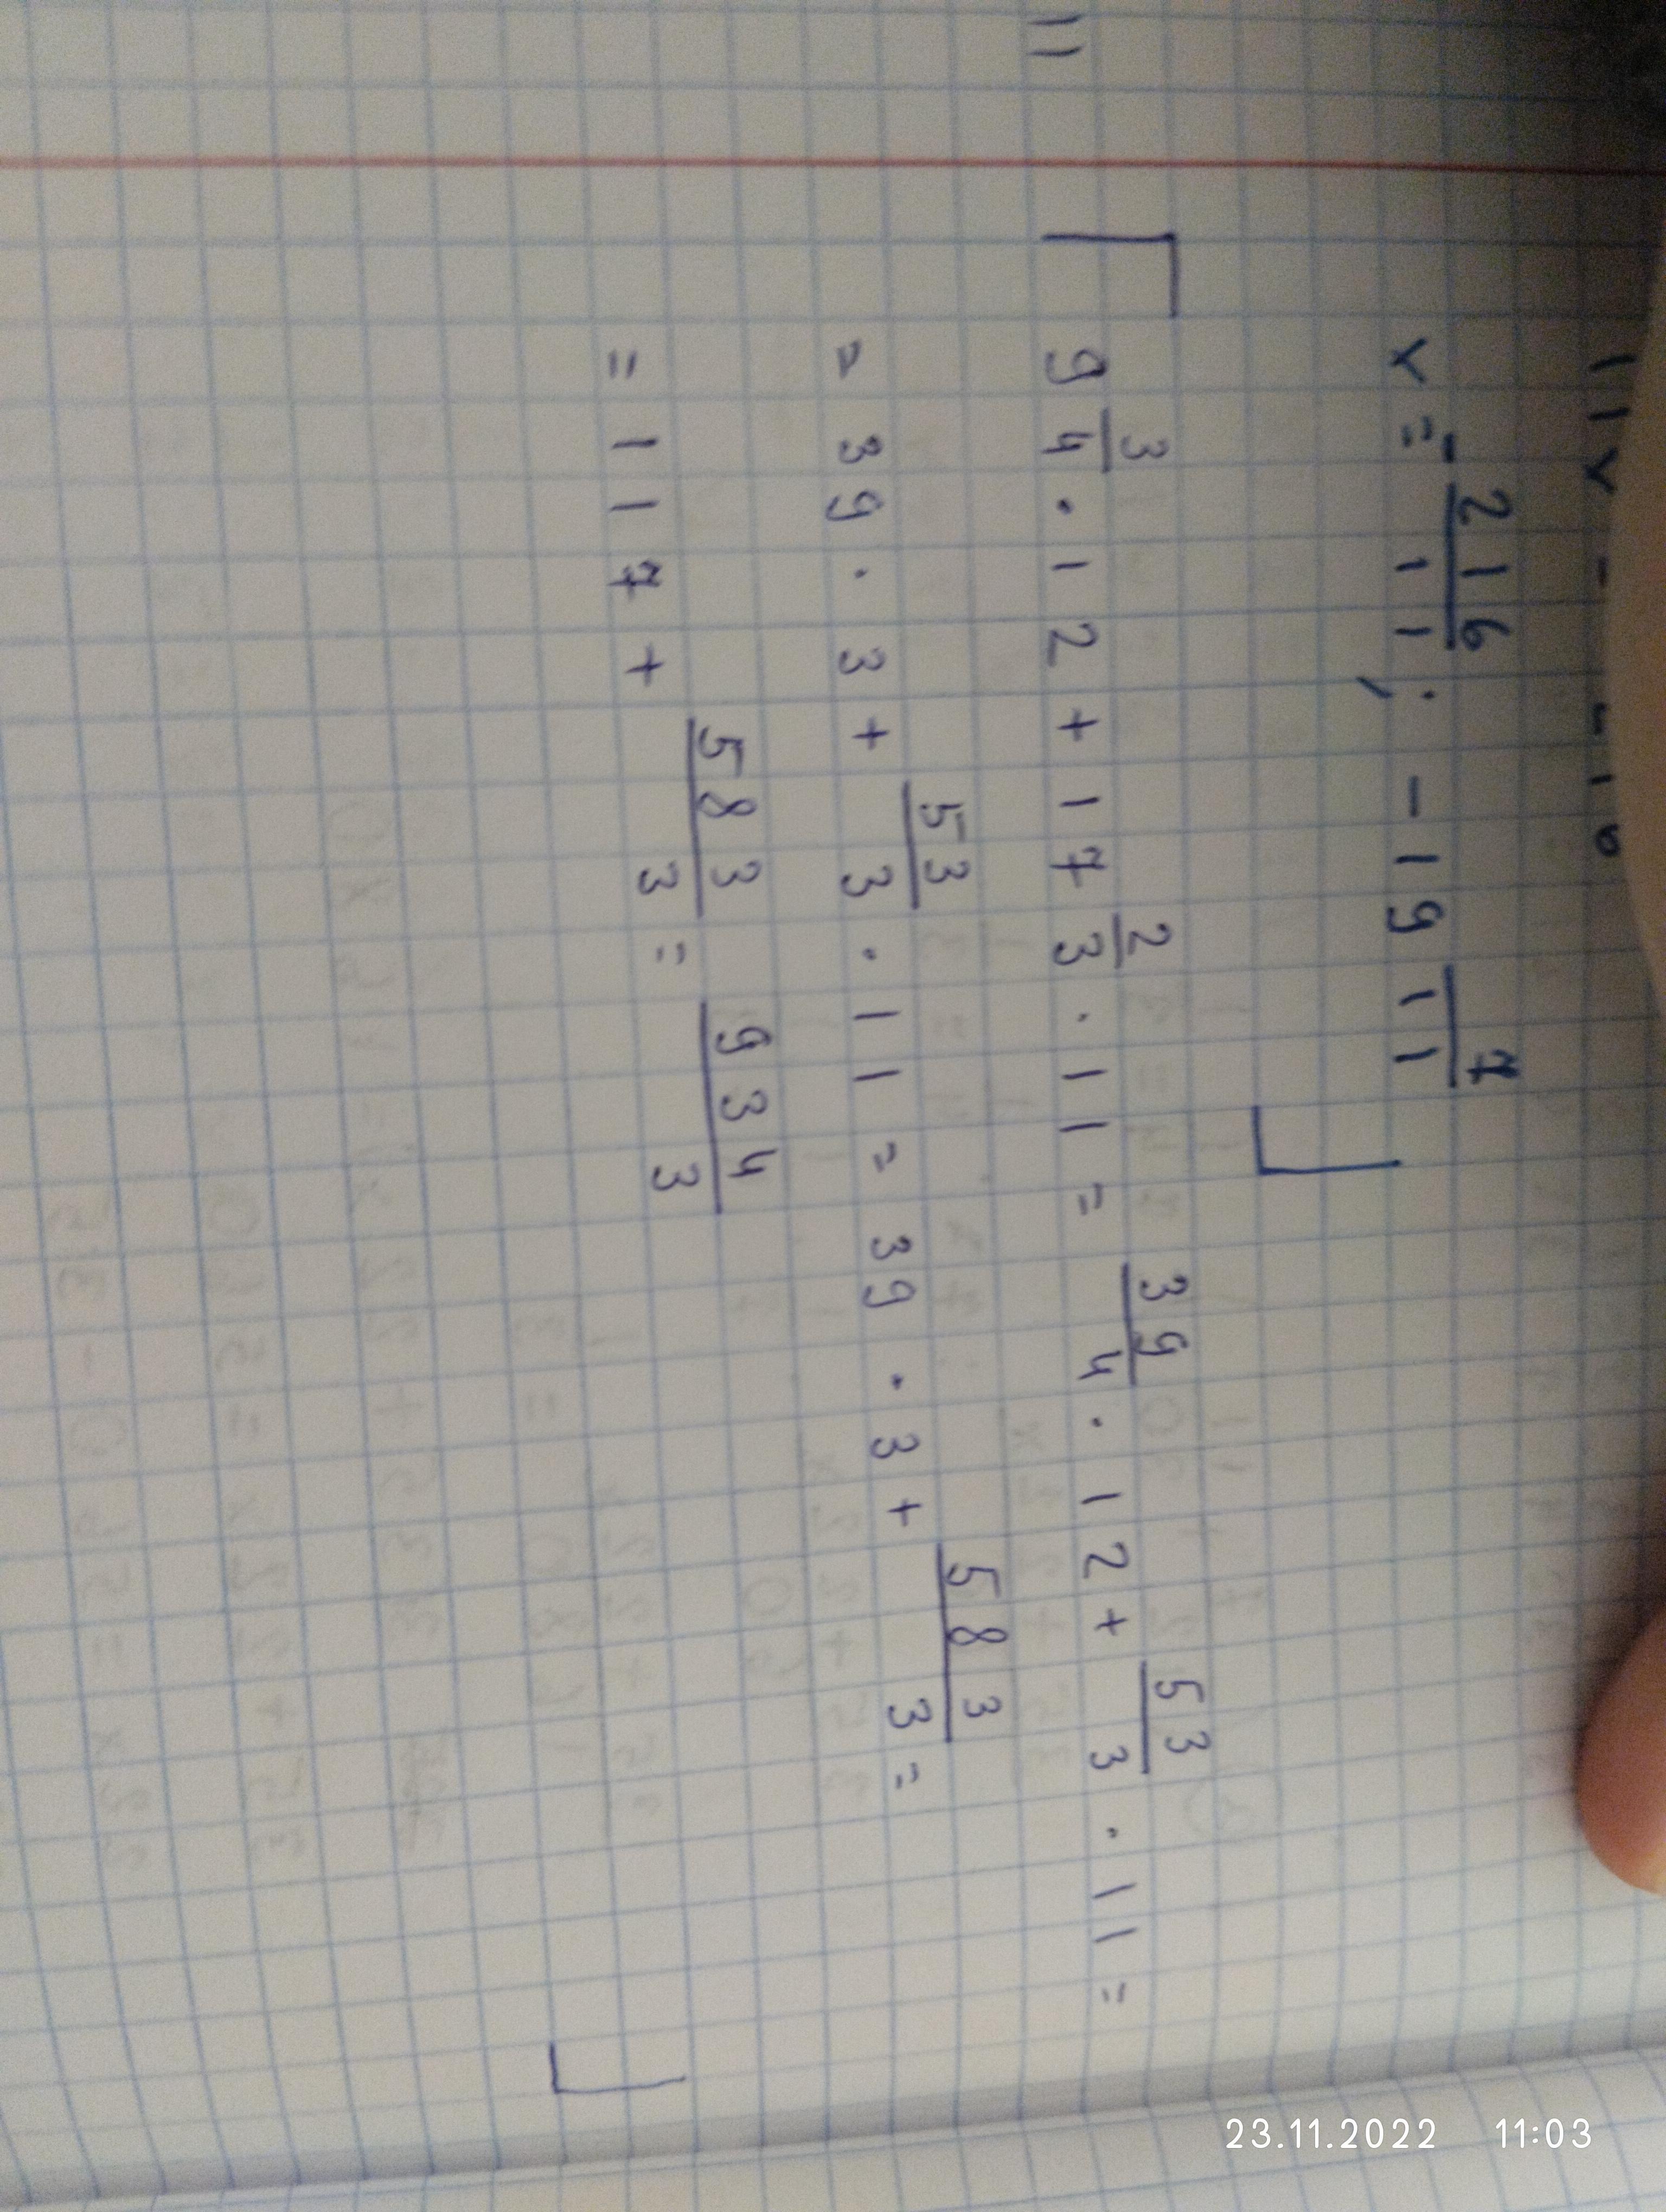 x = - 216/11 ; - 19 7/11
9 3/4 · 12 + 17 2/3 · 11 = 39/4 · 12 + 53/3 · 11 =
= 39 · 3 + 53/3 · 11 = 39 · 3 + 583/3 =
= 117 + 583/3 = 934/3
11
23.11.2022 11:03